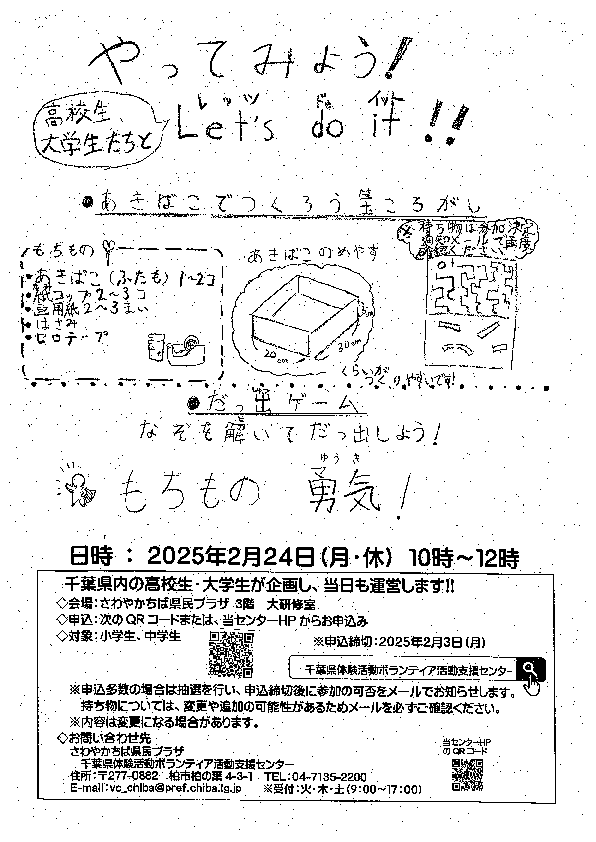 やってみよう!
高校生、
大学生たちと
レッツ ドゥ イット
Let's do it!!
●あきばこでつくろう玉ころがし
もちもの
・あきばこ(ふたも)1~2コ
・紙コップ2~3コ
・画用紙2~3まい
・はさみ
・セロテープ
あきばこのめやす
20cm
30cm
5cm
くらいが
つくりやすいです!
※持ち物は参加決定
通知メールで再度
確認ください
●だっ出ゲーム
なぞを解いてだっ出しよう!
ゆうき
もちもの 勇気!
日時 : 2025年2月24日(月・休) 10時~12時
千葉県内の高校生・大学生が企画し、当日も運営します!!
◇会場:さわやかちば県民プラザ 3階 大研修室
◇申込:次のQRコードまたは、当センターHPからお申込み
◇対象:小学生、中学生
※申込締切:2025年2月3日(月)
千葉県体験活動ボランティア活動支援センター
※申込多数の場合は抽選を行い、申込締切後に参加の可否をメールでお知らせします。
持ち物については、変更や追加の可能性があるためメールを必ずご確認ください。
※内容は変更になる場合があります。
◇お問い合わせ先
さわやかちば県民プラザ
千葉県体験活動ボランティア活動支援センター
住所:〒277-0882 柏市柏の葉4-3-1 TEL:04-7135-2200
E-mail:vc_chiba@pref.chiba.lg.jp ※受付:火・木・土(9:00~17:00)
当センターHP
のQRコード